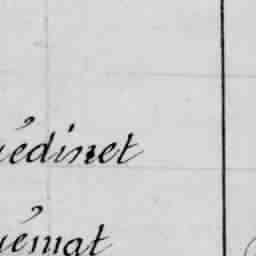 uédinet
uémat